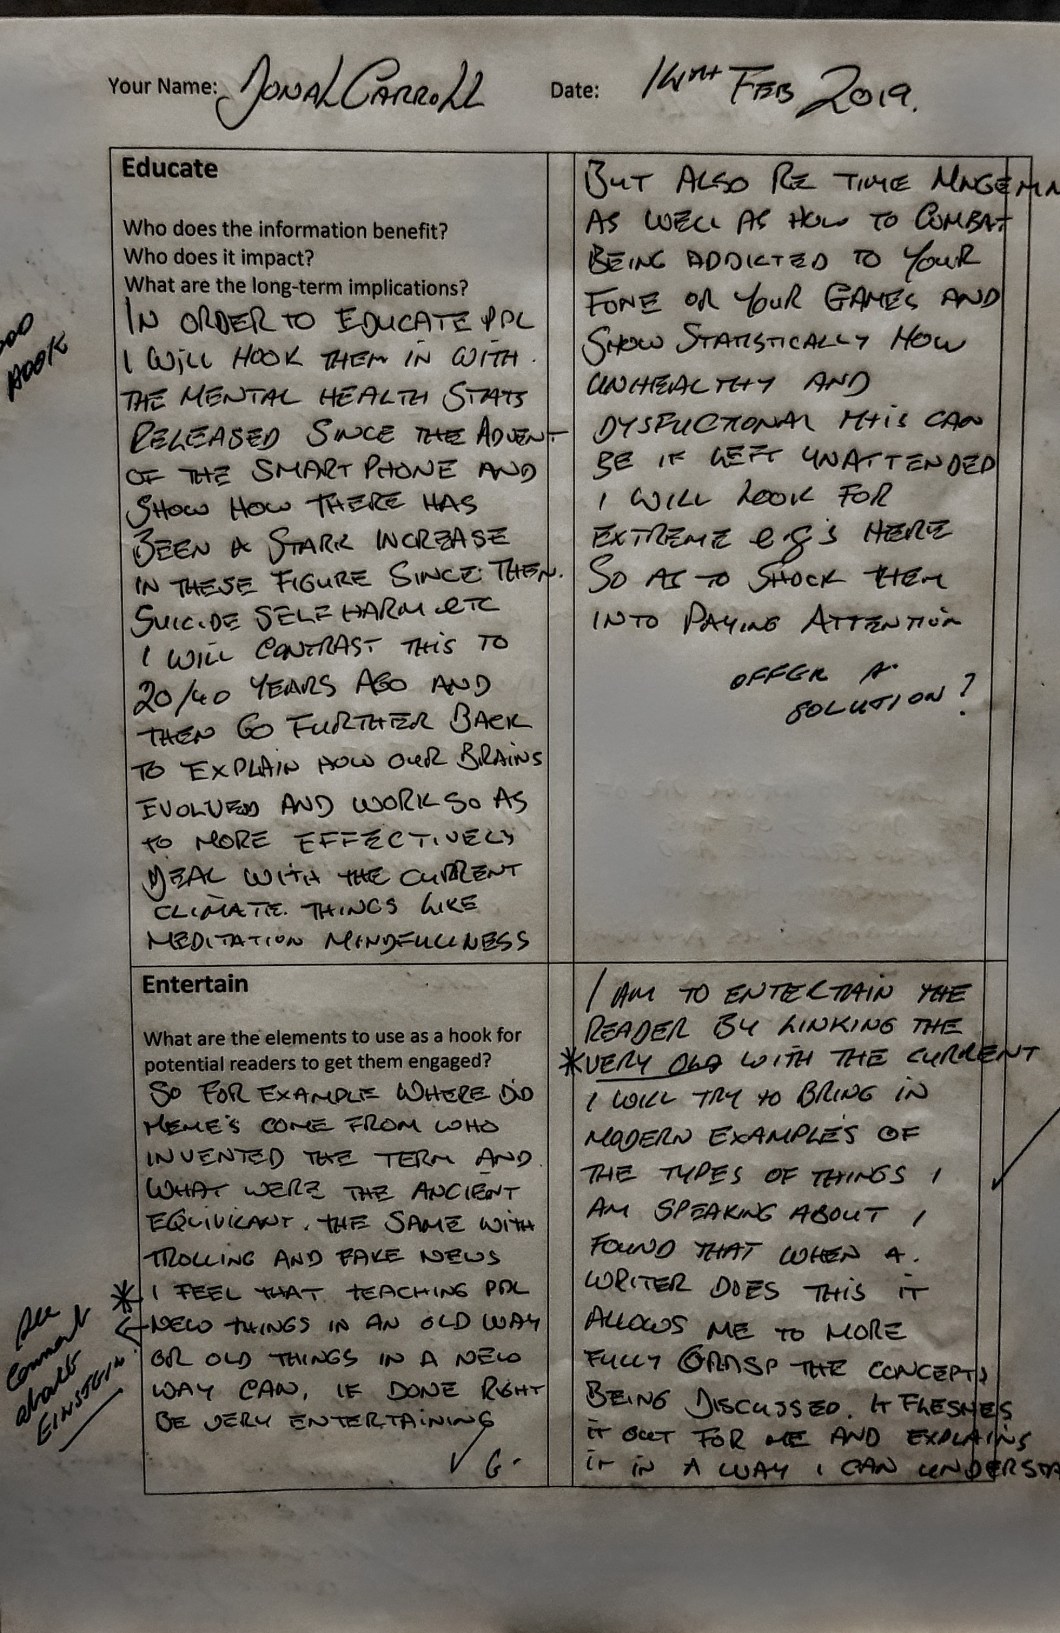 Your Name: Donal Carroll Date: 14TH FEB 2019.
Educate
Who does the information benefit?
Who does it impact?
What are the long-term implications?
IN ORDER TO EDUCATE PPL
I WILL HOOK THEM IN WITH
THE MENTAL HEALTH STATS
RELEASED SINCE THE ADVENT
OF THE SMART PHONE AND
SHOW HOW THERE HAS
BEEN A STARK INCREASE
IN THESE FIGURE SINCE THEN.
SUICIDE SELF HARM ETC
I WILL CONTRAST THIS TO
20/40 YEARS AGO AND
THEN GO FURTHER BACK
TO EXPLAIN HOW OUR BRAINS
EVOLVED AND WORK SO AS
TO MORE EFFECTIVELY
DEAL WITH THE CURRENT
CLIMATE. THINGS LIKE
MEDITATION MINDFULLNESS
HOOK
BUT ALSO RE TIME MNGEMN
AS WELL AS HOW TO COMBAT
BEING ADDICTED TO YOUR
FONE OR YOUR GAMES AND
SHOW STATISTICALLY HOW
UNHEALTHY AND
DYSFUCTIONAL THIS CAN
BE IF LEFT UNATTENDED
I WILL LOOK FOR
EXTREME e.g's HERE
SO AS TO SHOCK THEM
INTO PAYING ATTENTION
OFFER A
SOLUTION?
Entertain
What are the elements to use as a hook for
potential readers to get them engaged?
SO FOR EXAMPLE WHERE DID
MEME'S COME FROM WHO
INVENTED THE TERM AND
WHAT WERE THE ANCIENT
EQUIVILANT. THE SAME WITH
TROLLING AND FAKE NEWS
* I FEEL THAT TEACHING PPL
NEW THINGS IN AN OLD WAY
OR OLD THINGS IN A NEW
WAY CAN, IF DONE RIGHT
BE VERY ENTERTAINING
G.
See
comment
about
EINSTEIN
I AM TO ENTERTAIN THE
READER BY LINKING THE
* VERY OLD WITH THE CURRENT
I WILL TRY TO BRING IN
MODERN EXAMPLES OF
THE TYPES OF THINGS I
AM SPEAKING ABOUT I
FOUND THAT WHEN A
WRITER DOES THIS IT
ALLOWS ME TO MORE
FULLY GRASP THE CONCEPTS
BEING DISCUSSED. IT FLESHES
IT OUT FOR ME AND EXPLAINS
IT IN A WAY I CAN UNDERSTA